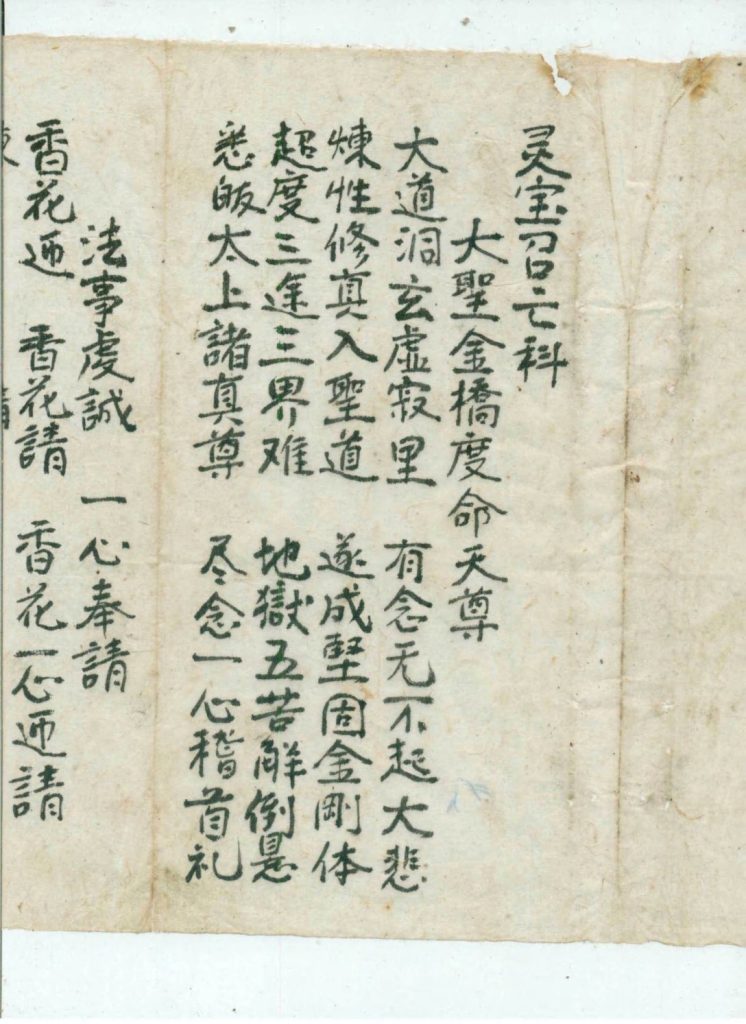 灵宝召亡科
大聖金橋度命天尊
大道洞玄虛寂里 有念无不起大悲
煉性修真入聖道 遂成堅固金剛体
超度三途三界难 地獄五苦解倒悬
悉皈太上諸真尊 尽念一心稽首礼
法事虔誠 一心奉請
香花迊 香花請 香花一心迊請